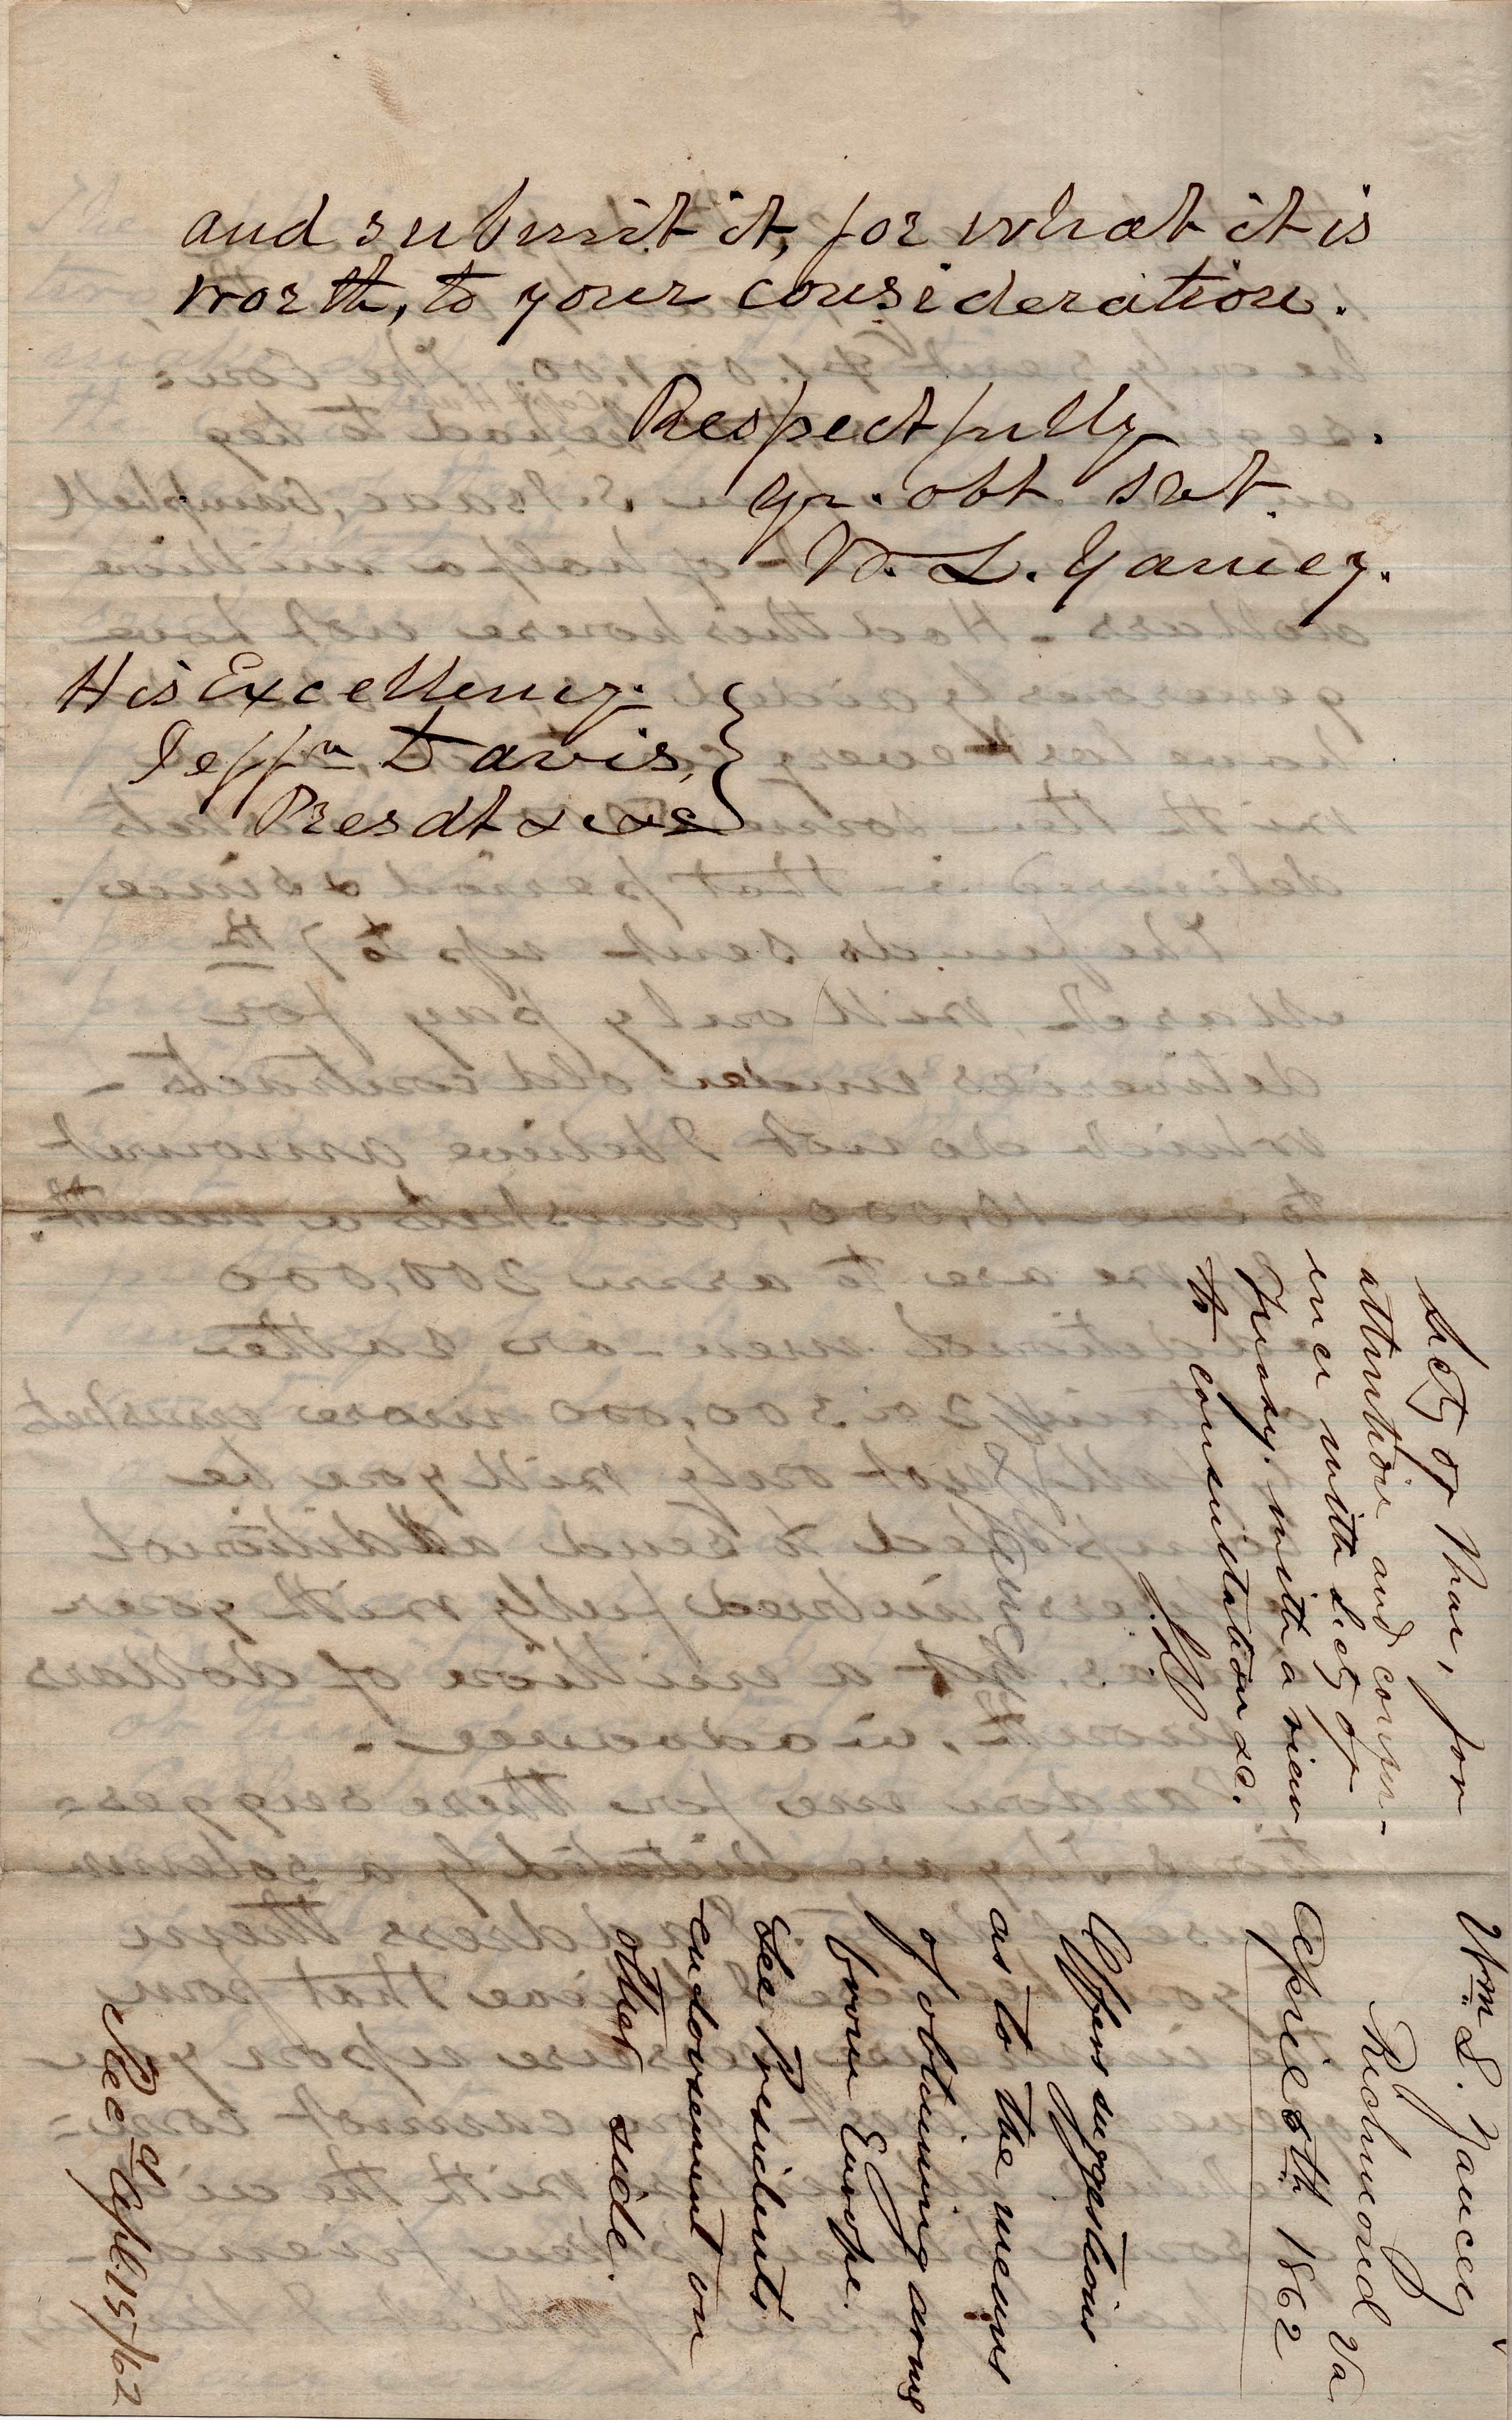 and submit it, for what it is
worth, to your consideration.
Respectfully
yr. obt svt.
W. L. Yancey.
His Excellency.
Jeffn Davis,
Presdt &c &c
Secty of War, for
attention and confer-
ence with Secty of
Treasy. with a view
to consultation &c.
J. D.
Wm L. Yancey
Richmond Va
April 5th 1862
Offers suggestions
as to the means
of obtaining arms
from Europe.
See Presidents
endorsement on
other side.
Recd Apl. 15/62